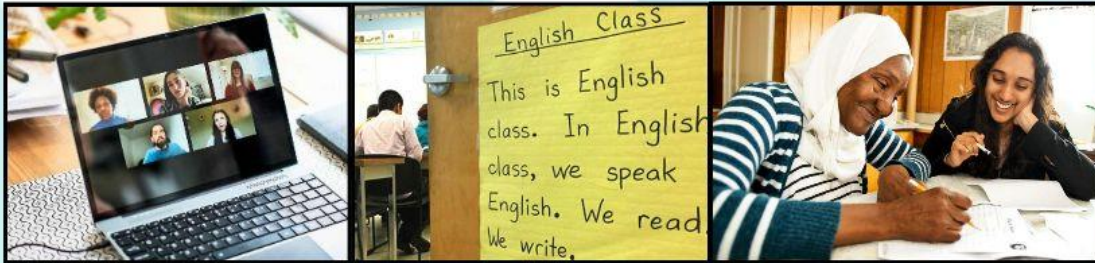 English Class
This is English
class. In English
class, we speak
English. We read.
We write.